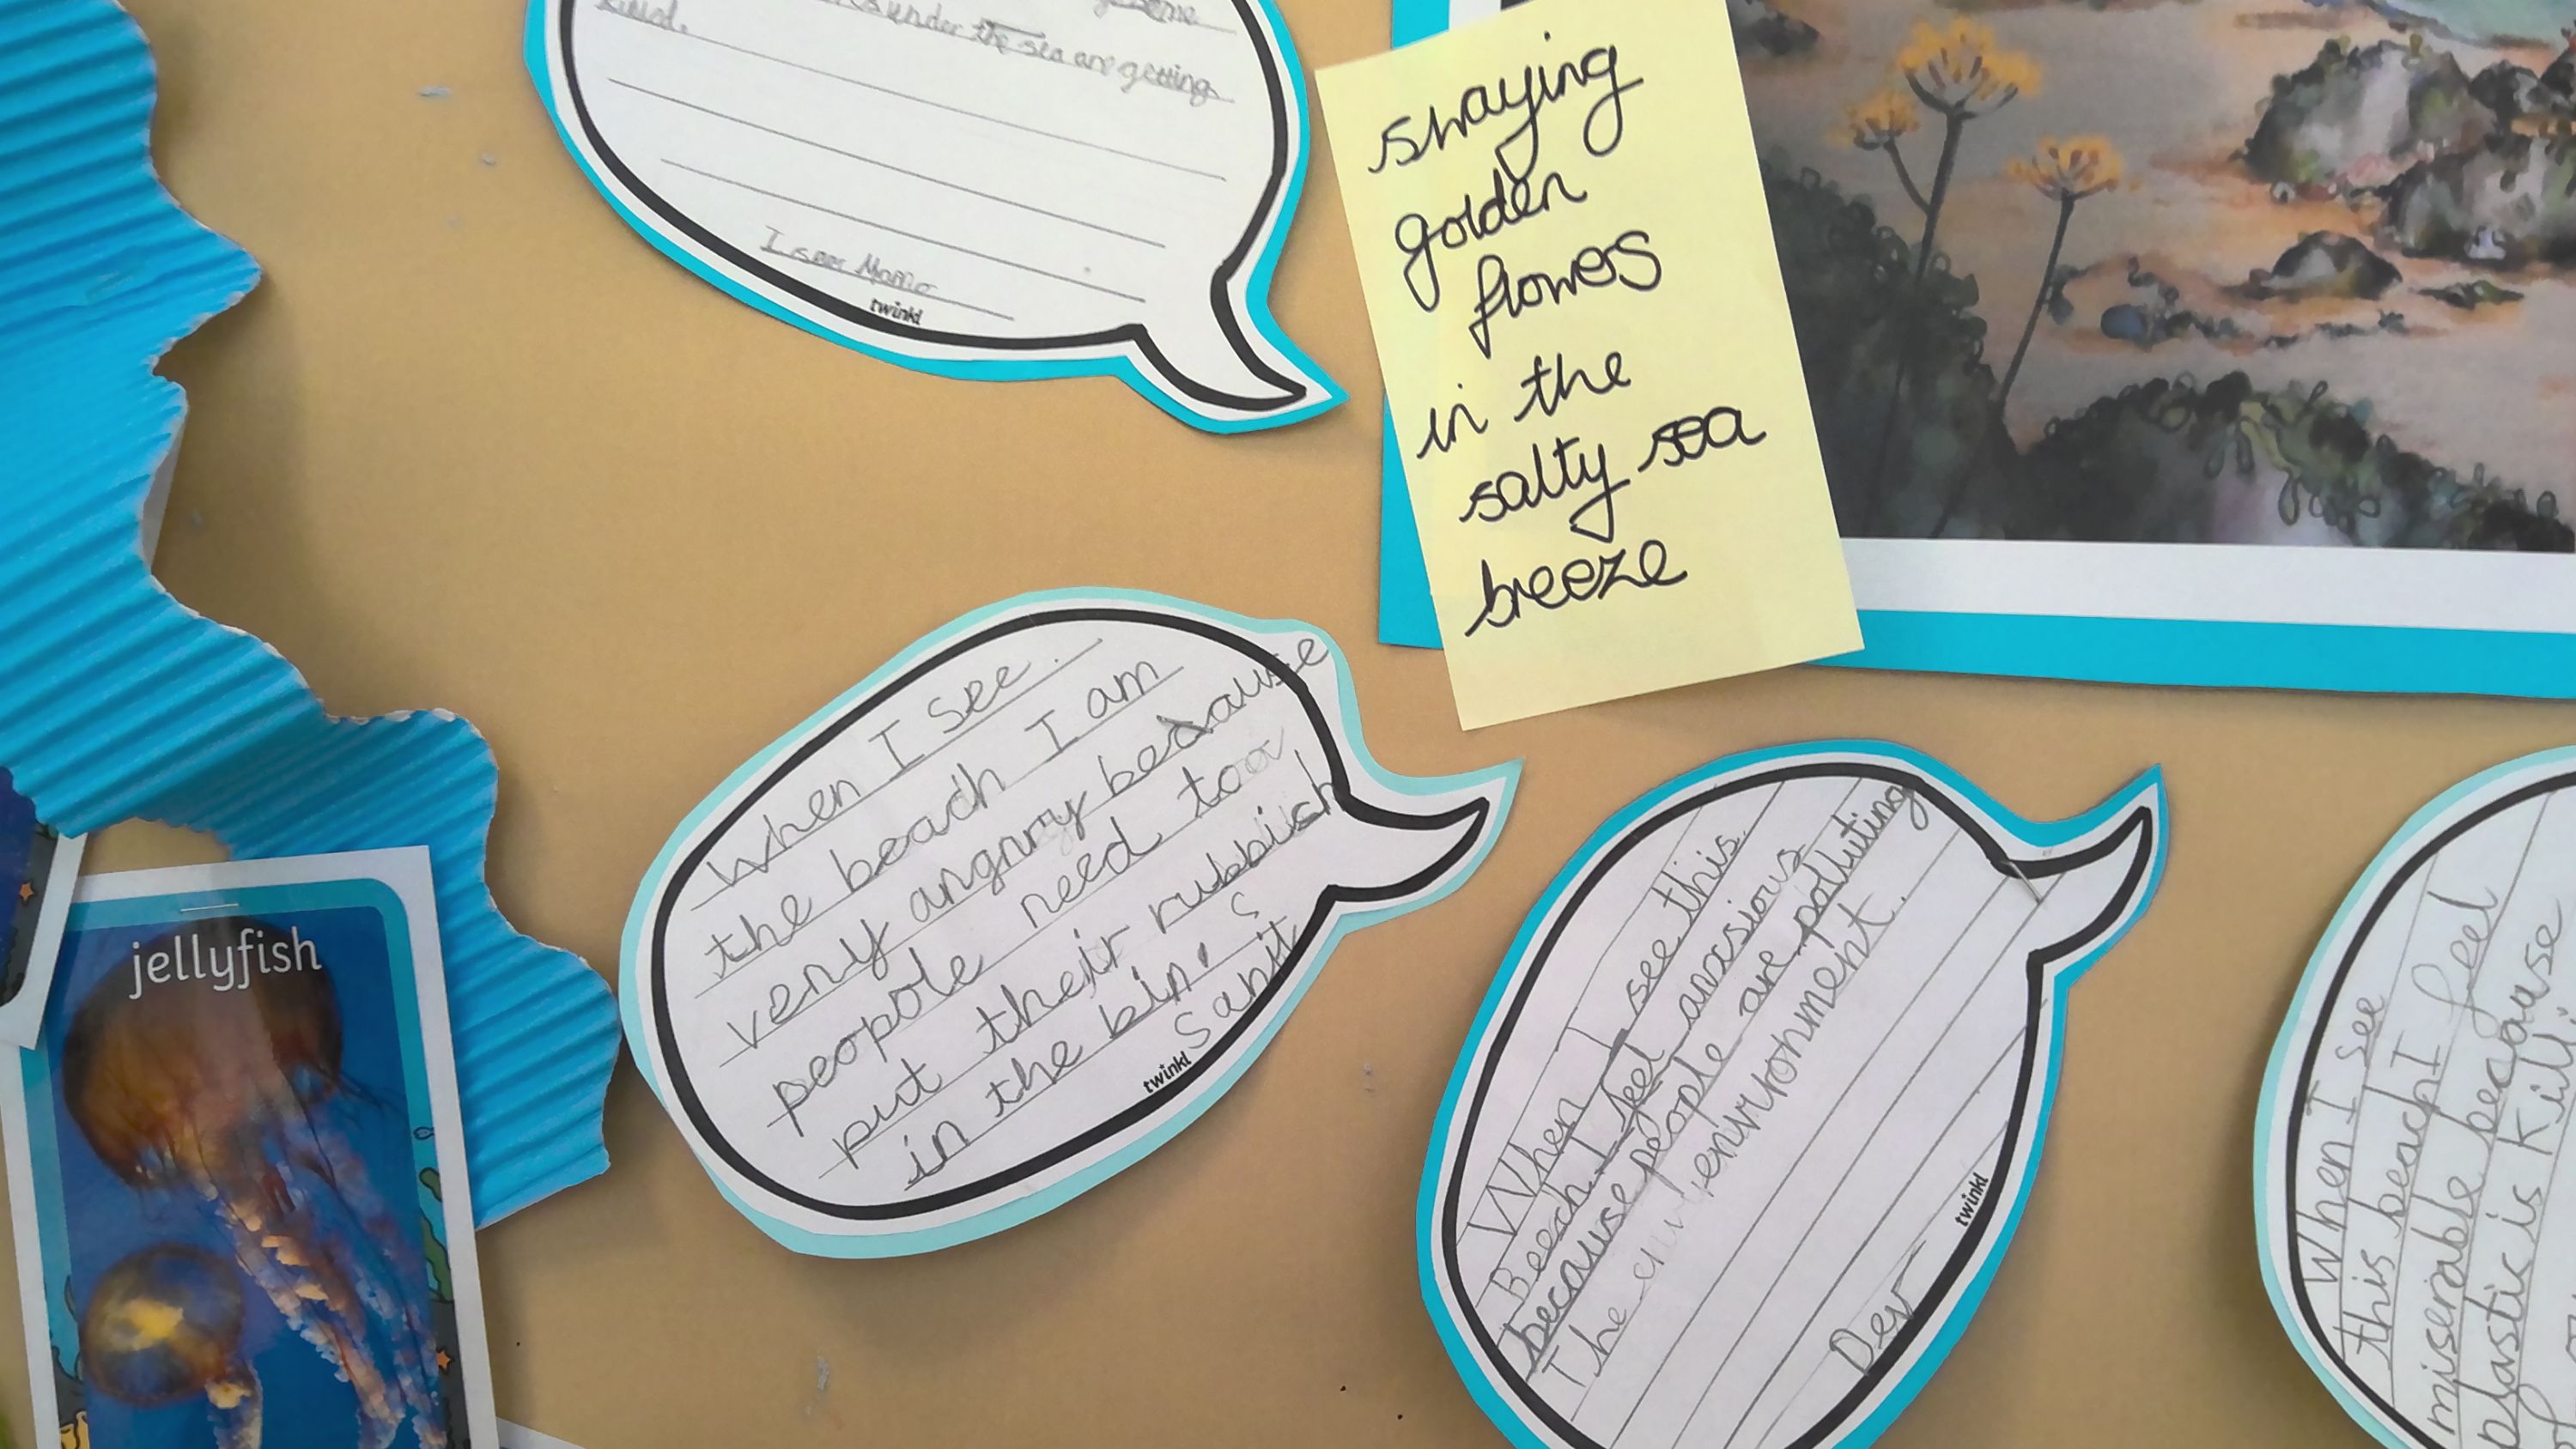 under the sea are getting
killd.
twinkl
swaying
golden
flowers
in the
salty sea
breeze
When I see
the beach I am
very angrry because
peopole need to
put their rubbish
in the bin.
twinkl
When I see this
Beech I feel anxsious
because people are polluting
The environment.
Dev
twinkl
When I see
this beach I feel
miserable beacause
plastic is
jellyfish